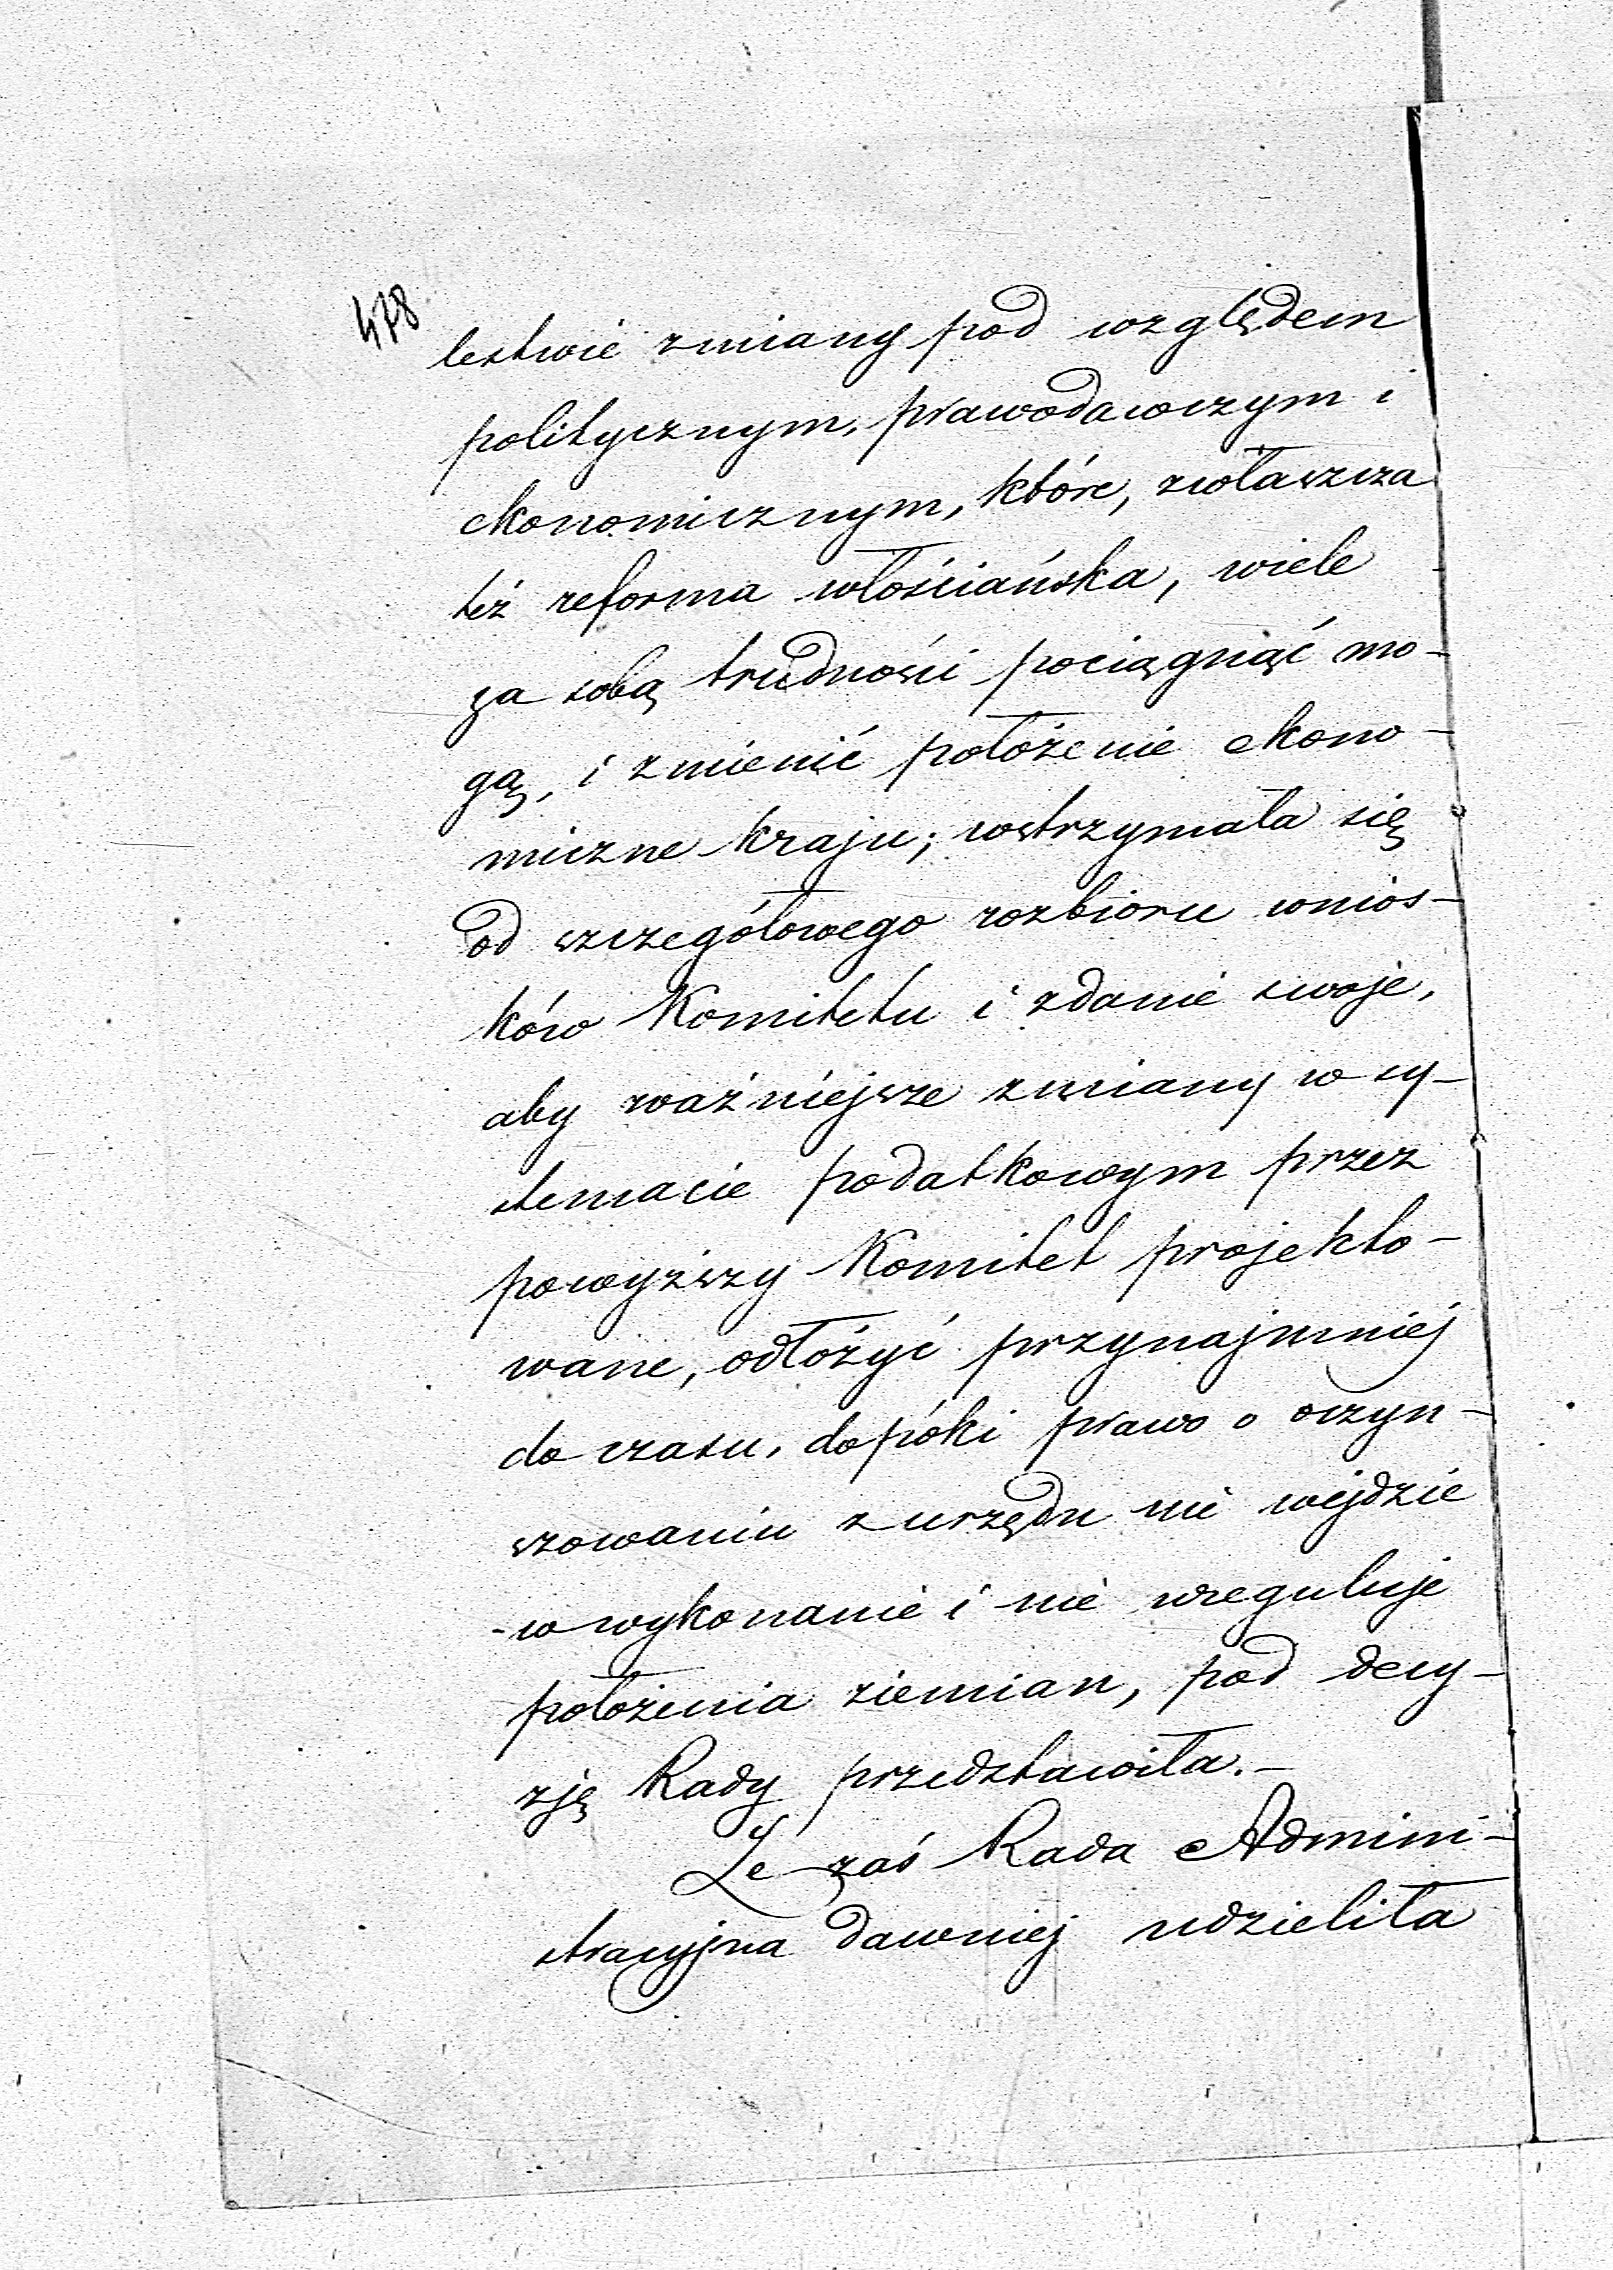 478
lestwie zmiany pod względem
politycznym, prawodawczym i
ekonomicznym, które, zwłaszcza
też reforma włościańska, wiele
za sobą trudności pociągnąć mo-
gą, i zmienić położenie ekono-
miczne kraju; wstrzymała się
od szczegółowego rozbioru wnios-
ków Komitetu i zdanie swoje,
aby ważniejsze zmiany w sy-
stemacie podatkowym przez
powyższy Komitet projekto-
wane, odłożyć przynajmniej
do czasu, dopóki prawo o oczyn-
szowaniu z urzędu nie wejdzie
w wykonanie i nie ureguluje
położenia ziemian, pod decy-
zję Rady przedstawiła.-
Że zaś Rada Admini-
stracyjna dawniej udzieliła